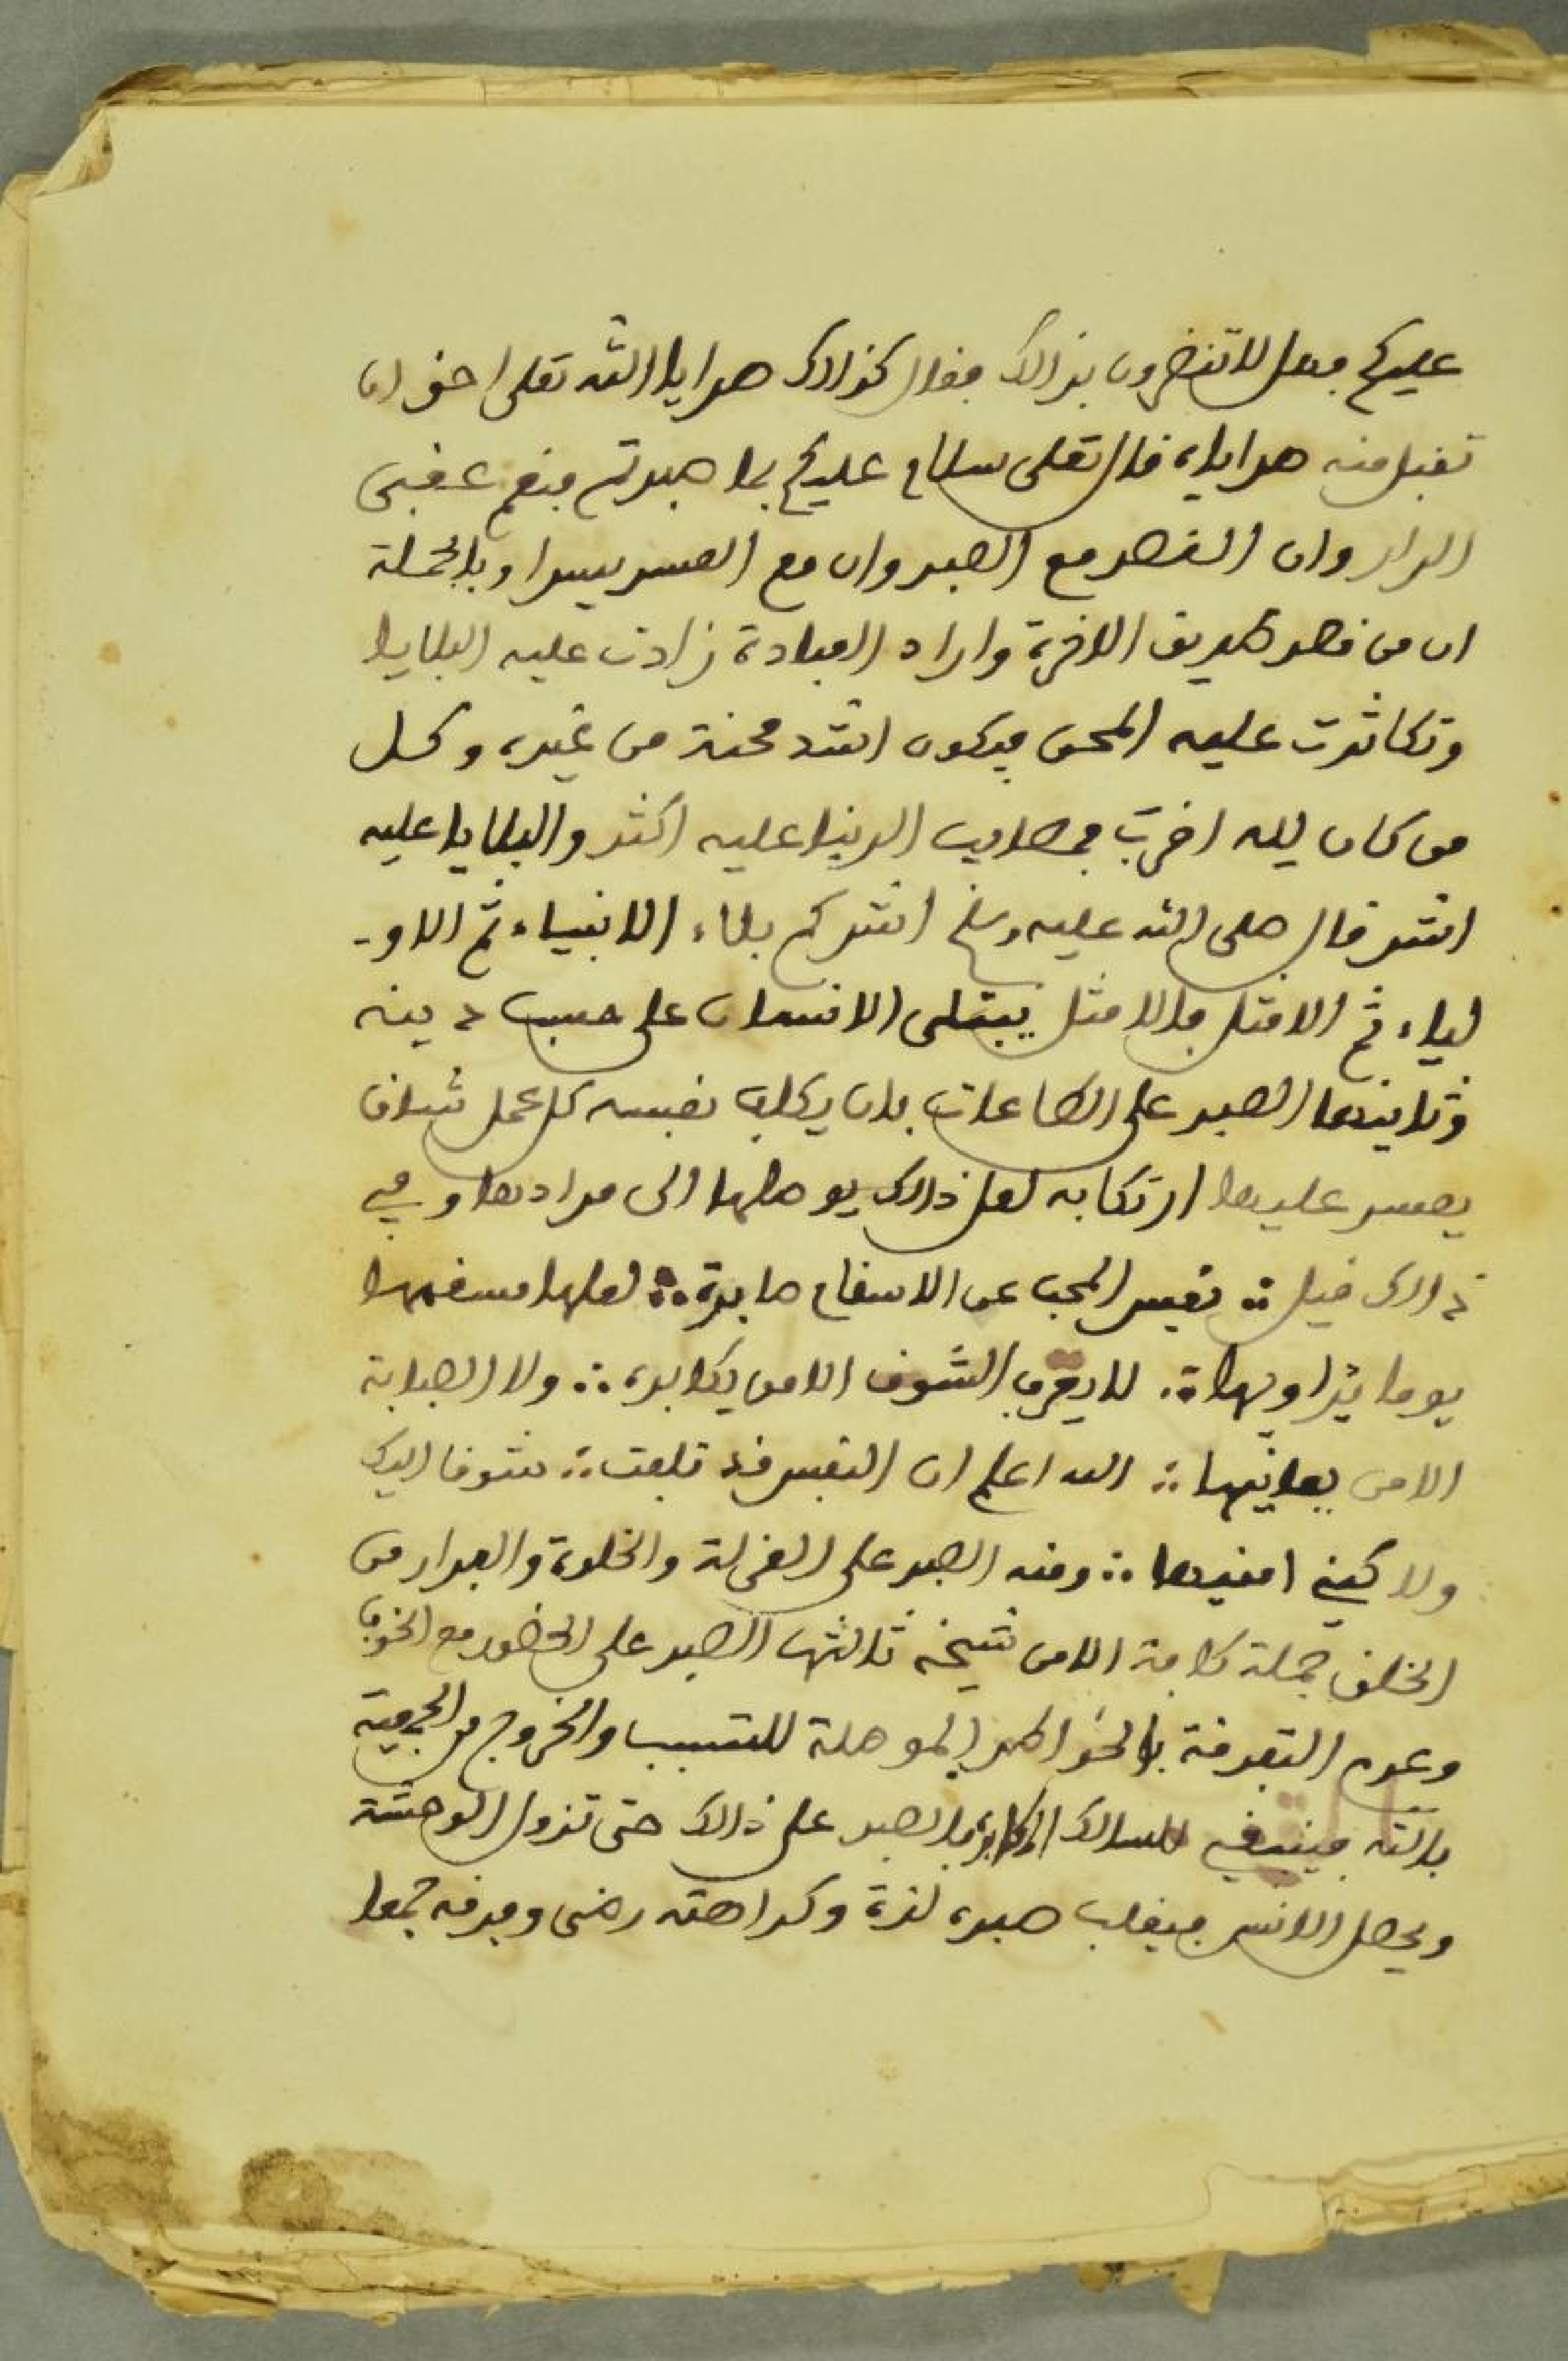 عليكم فهل لا تنضرون بذالك فقال كذالك هدايا الله تعلى احق ان
تقبل منه هداياه قال تعلى سلام عليكم بما صبرتم فنعم عقبى
الدار وان النصر مع الصبر وان مع العسر يسرا وبالجملة
ان من قصد طريق الاخرة واراد العبادة زادت عليه البلايا
وتكاثرت عليه المحن فيكون اشد محنة من غيره وكل
من كان لله اقرب فمصايب الدنيا عليه اكثر والبلايا عليه
اشد قال صلى الله عليه وسلم اشدكم بلاء الانبياء ثم الاو-
لياء ثم الامثل فالامثل يبتلى الانسان على حسب دينه
وثانيها الصبر على الطاعات بان يكلف نفسه كل عمل شاق
يعسر عليها ارتكابه لعل ذالك يوصلها الى مرادها وفي
ذالك قيل ∴ نفس المحب عن الاسقام صابرة ∴ لعلها مسقمها
يوما يداويها ∴ لا يعرف الشوق الا من يكابده ∴ ولا الصبابة
الا من يعانيها ∴ الله اعلم ان النفس قد تلفت ∴ شوقا اليك
ولاكيني امنيها ∴ ومنه الصبر على العزلة والخلوة والفرار من
الخلق جملة كافة الا من شيخه ثالثها الصبر على الحضور مع الخوف
وعدم التفرقة بالخواطر الموصلة للتسبب والخروج من الجمعية
بالله فينبغي للسالك المكابرة بالصبر على ذالك حتى تزول الوحشة
ويحصل الانس فينقلب صبره لذة وكراهته رضى وفرقه جمعا